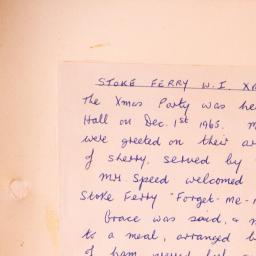 STOKE FERRY W.I. X
The Xmas Party was he
Hall on Dec. 1st 1965. M
were greeted on their ar
of sherry, served by
Mrs Speed welcomed
Stoke Ferry "Forget-me-
Grace was said, a
to a meal, arranged b
of ham